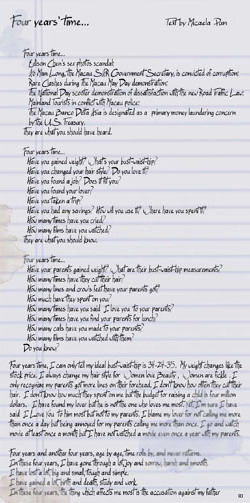 Four years' time...
Text by Micaela Pun
Four years time...
Edison Chen's sex photos scandal;
Ao Man Long, the Macau SAR Government Secretary, is convicted of corruption;
Rare Clashes during the Macau May Day demonstration;
The National Day scooter demonstration of dissatisfaction with the new Road Traffic Law;
Mainland tourists in conflict with Macau police;
The Macau Banco Delta Asia is designated as a primary money laundering concern
by the U.S. Treasury.
They are what you should have heard.
Four years time...
Have you gained weight? What's your bust-waist-hip?
Have you changed your hair style? Do you love it?
Have you found a job? Does it fit you?
Have you found your lover?
Have you taken a trip?
Have you had any savings? How will you use it? Where have you spent it?
How many times have you cried?
How many films have you watched?
They are what you should know.
Four years time...
Have your parents gained weight? What are their bust-waist-hip measurements?
How many times have they cut their hair?
How many lines and crow's feet have your parents got?
How much have they spent on you?
How many times have you said I love you to your parents?
How many times have you find your parents for lunch?
How many calls have you made to your parents?
How many films have you watched with them?
Do you know?
Four years time, I can only tell my ideal bust-waist-hip is 34-24-35. My weight changes like the
stock price. I always change my hair style for Women love Beauty, Women are fickle. I
only recognize my parents got more lines on their forehead. I don't know how often they cut their
hair. I don't know how much they spent on me but the budget for raising a child is four million
dollars. I have found my lover but he is not the one who loves me most; yet, I'm sure I have
said I Love You to him most but not to my parents. I blame my lover for not calling me more
than once a day but being annoyed for my parents calling me more than once. I go and watch
movie at least once a month but I have not watched a movie even once a year with my parents.
Four years and another four years, age by age, time rolls by, and never returns.
In these four years, I have gone through a lot joy and sorrow, harsh and smooth.
I have lost a lot big and small, tough and simple.
I have gained a lot birth and death, study and work.
In these four years, the thing which affects me most is the accusation against my father.